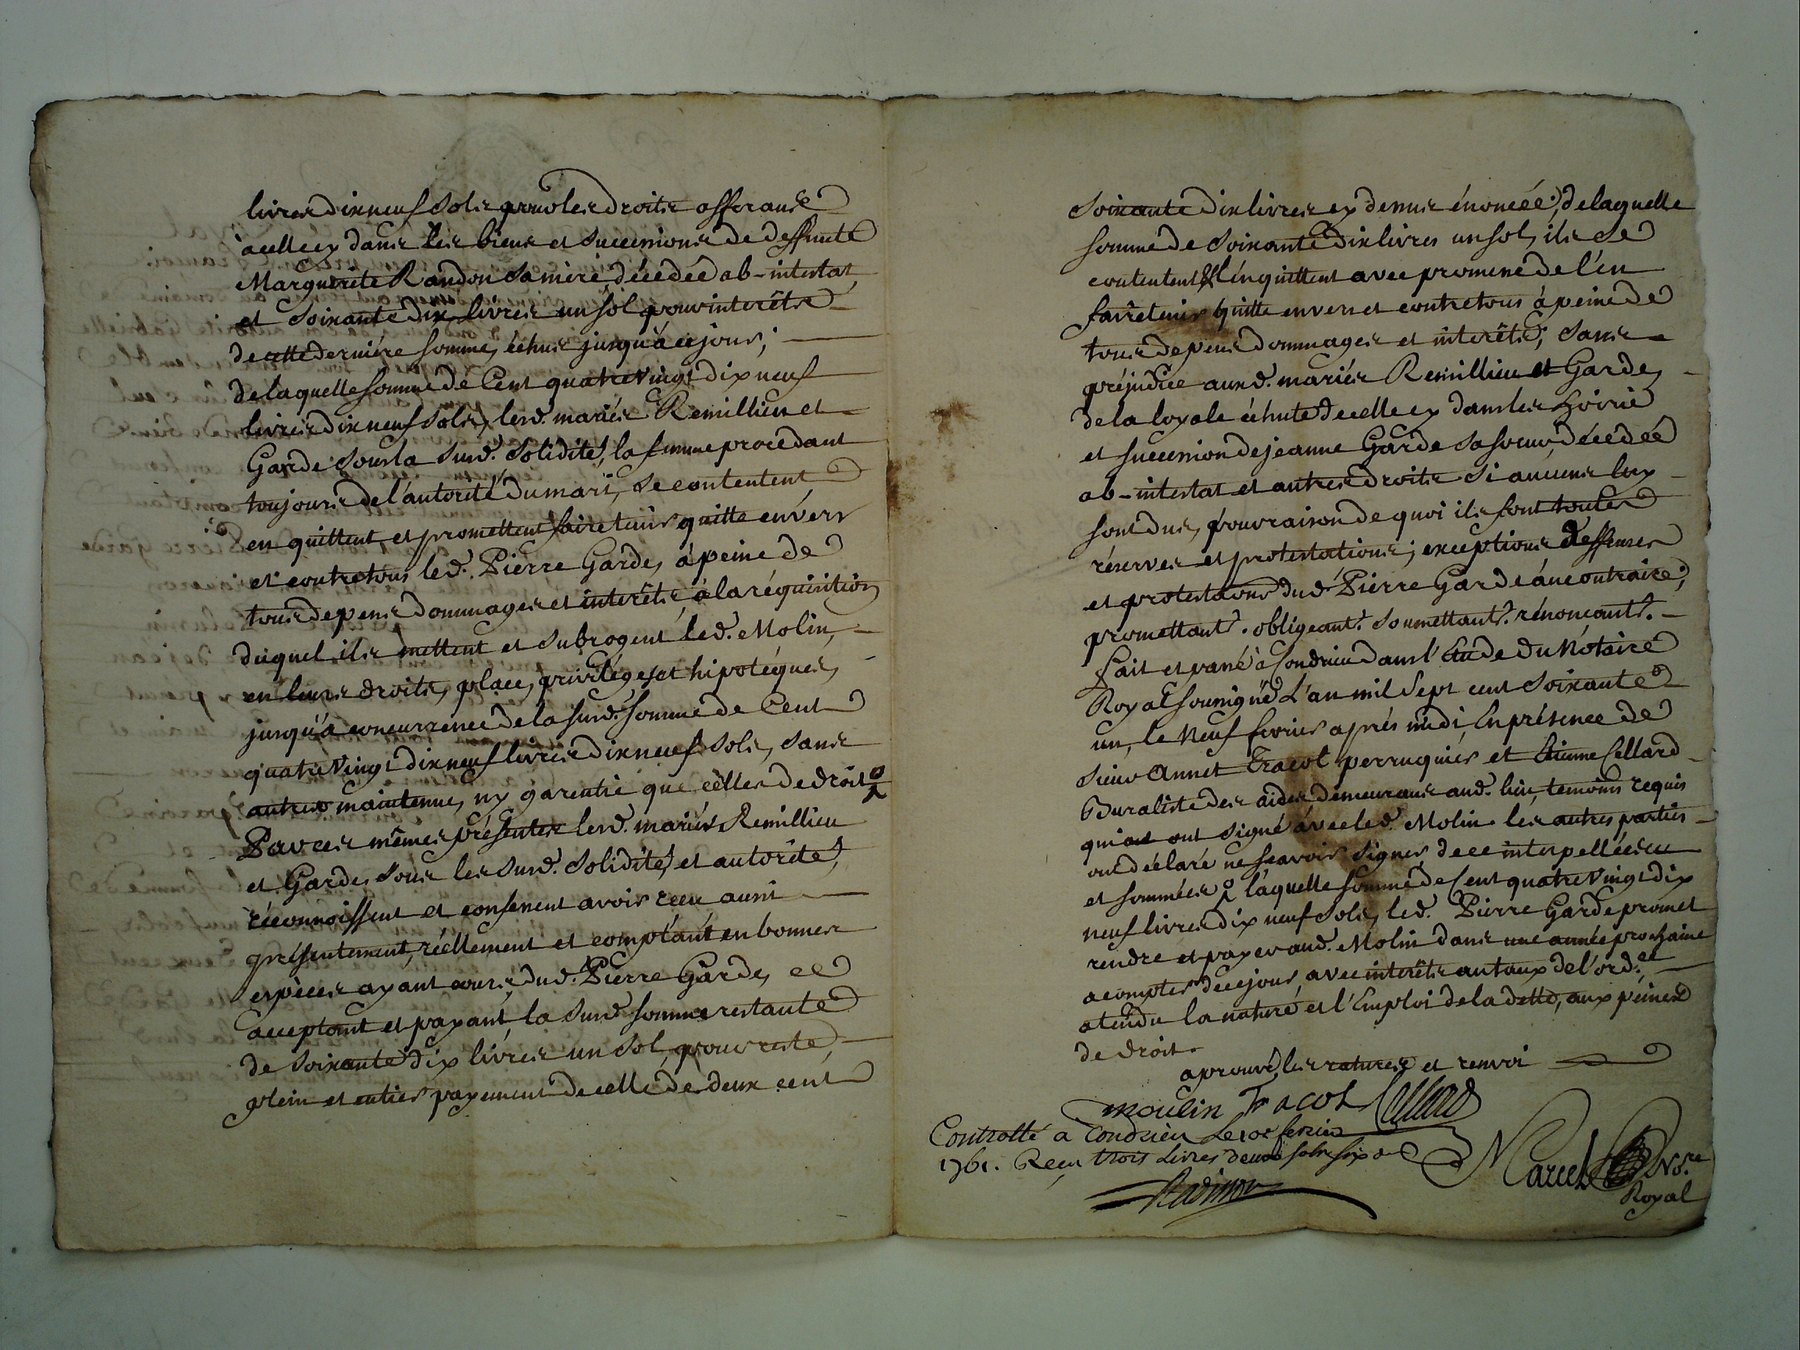 livres dixneuf sols pour les droits afferants
à celle cy dans les biens et successions de deffunte
Marguerite Randon sa mère décédée ab-intestat,
et soixante dix livres un sol pour interêts
de cette dernière somme, échus jusqu'à ce jour;
de laquelle somme de Cent quatre Vingt dix neuf
livres dix neuf sols, lesd. mariés Remillieu et
Garde sous la susd. solidité, la femme procédant
toujours de l'autorité du mari, se contentent
en quittent, et promettent faire tenir quitte envers
et contre tous led. Pierre Garde, à peine de
tous depens dommages et interêts, à la réquisition
duquel ils mettent et subrogent led. Molin,
en leurs droits, place, privilèges et hipotéques,
jusqu'à concurrence de la susd. somme de Cent
quatre Vingt dix neuf livres dix neuf sols, sans
autre maintenue, ny garentie que celles de droit
Par ces mêmes présentes lesd. mariés Remillieu
et Garde, sous les susd. solidité, et autorité,
réconnoissent et confessent avoir receu aussi
présentement, réellement et comptant en bonnes
espèces ayant cours, dud. Pierre Garde, ce
acceptant et payant, la susd. somme restante
de soixante dix livres un sol, pour reste,
plein et entier payement de celle de deux cent
soixante dix livres cy dessus énoncée, de laquelle
somme de soixante dix livres un sol, ils se
contentent & l'enquittent avec promesse de l'en
faire tenir quitte envers et contre tous à peine de
tous depens dommages et interêts, sans
préjudice auxd. mariés Remillieu et Garde,
de la loyale échute de celle cy dans les hoirie
et succession de jeanne Garde sa soeur décédée
ab-intestat et autres droits si aucuns luy
sont dus, pour raison de quoi ils font toutes
réserves et protestations; exceptions deffenses
et protestations dud. Pierre Garde au contraire;
promettant. obligeant. soumettant. rénonçant.
fait et passé à Condrieu dans l'Etude du Notaire
Royal soussigné L'an mil sept cent soixante
un, le Neuf fevrier après midi, En présence de
sieur Annet Tracol perruquier et Etienne Cellard
Buraliste des aides, demeurans aud. lieu, temoins requis
qui ont signé avec led. Molin. les autres parties
ont déclaré ne scavoir signer de ce interpellées
et sommées laquelle somme de Cent quatre Vingt dix
neuf livres dix neuf sols, led. Pierre Garde promet
rendre et payer aud. Molin dans une année prochaine
a compter de ce jour, avec interêts au taux de l'ord.ce
atendu la nature et l'Emploi de la dette, aux peines
de droit.
aprouvé, les ratures et renvoi
moulin Tracol Cellard
Controllé a Condrieu le 10e fevrier
1761. Reçu trois Livres deux sols six d
Marcel Nore
Royal